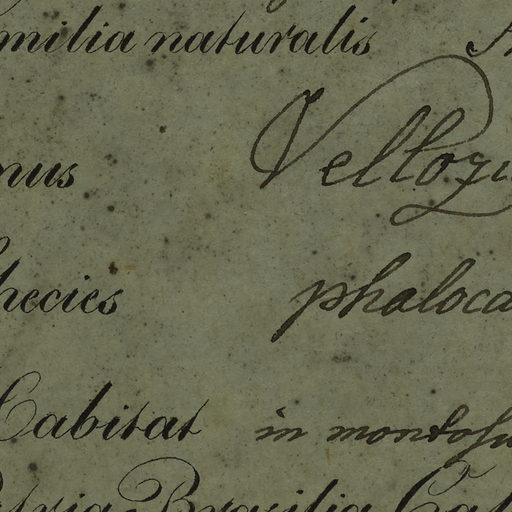 milia naturalis
nus Vellozi
pecies phaloca
Habitat in montosu
Patria Brasilia Ca